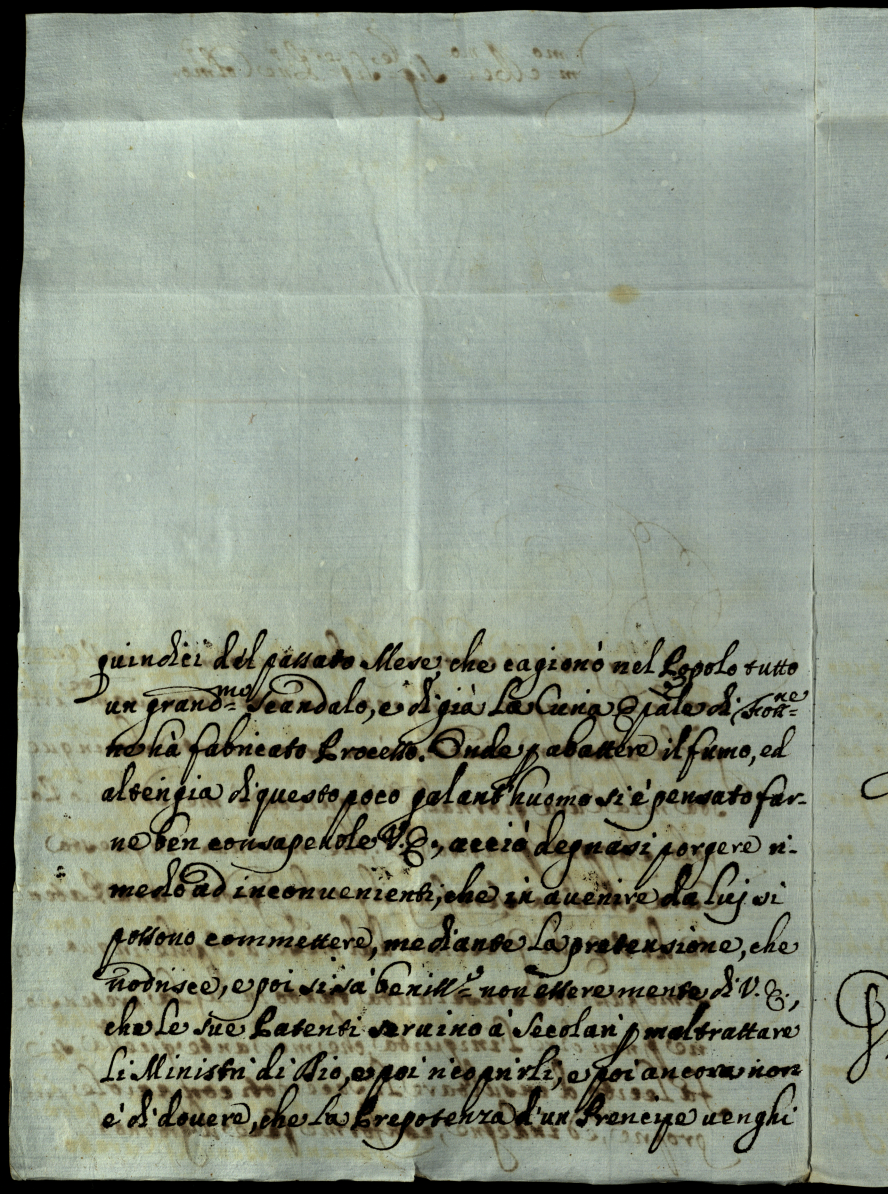 quindici del passato Mese, che cagionò nel Popolo tutto
un grand.mo scandalo, e di già la Curia Epāle di
ne hà fabricato Processo. Onde p abattere il fumo, ed
alterigia di questo poco galant'huomo si è pensato far-
ne ben consapevole V. E., acciò degnasi porgere ri-
medio ad inconvenienti, che in avenire da luj si
possono commettere, mediante la pretensione, che
nodrisce, e poi si sà beniss.o non essere mente di V. E.,
che le sue Patenti servino à Secolari p maltrattare
li Ministri di Dio, e poi ricoprirli, e poi ancora non
è di dovere, che la Prepotenza d'un Prencipe venghi